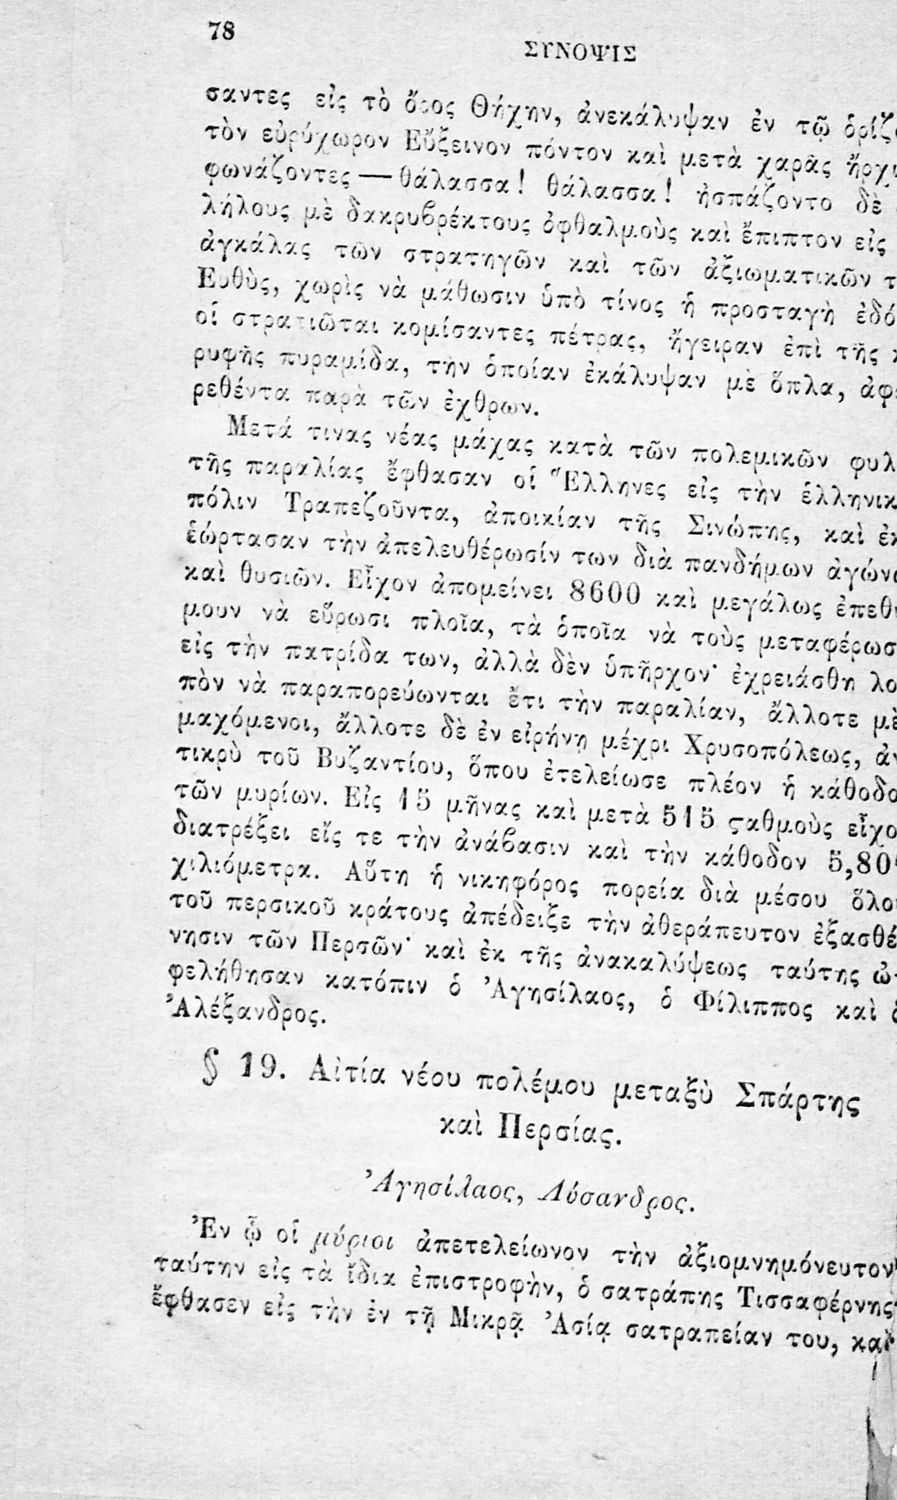 78
ΣΥΝΟΨΙΣ
σαντες εἰς τὸ ὄρος Θήχην, ἀνεκάλυψαν ἐν τῷ ὁρίζ
τὸν εὐρύχωρον Εὔξεινον πόντον καὶ μετὰ χαρᾶς ἤρχι
φωνάζοντες — θάλασσα! θάλασσα! ἠσπάζοντο δὲ
λήλους μὲ δακρυβρέκτους ὀφθαλμοὺς καὶ ἔπιπτον εἰς
ἀγκάλας τῶν στρατηγῶν καὶ τῶν ἀξιωματικῶν τ
Εὐθὺς, χωρὶς νὰ μάθωσιν ὑπὸ τίνος ἡ προσταγὴ ἐδό
οἱ στρατιῶται κομίσαντες πέτρας, ἤγειραν ἐπὶ τῆς κ
ρυφῆς πυραμίδα, τὴν ὁποίαν ἐκάλυψαν μὲ ὅπλα, ἀφ
ρεθέντα παρὰ τῶν ἐχθρων.
Μετά τινας νέας μάχας κατὰ τῶν πολεμικῶν φυλ
τῆς παραλίας ἔφθασαν οἱ Ἕλληνες εἰς τὴν ἑλληνικ
πόλιν Τραπεζοῦντα, ἀποικίαν τῆς Σινώπης, καὶ ἐκ
ἑώρτασαν τὴν ἀπελευθέρωσίν των διὰ πανδήμων ἀγών
καὶ θυσιῶν. Εἶχον ἀπομείνει 8600 καὶ μεγάλως ἐπεθ
μουν νὰ εὕρωσι πλοῖα, τὰ ὁποῖα νὰ τοὺς μεταφέρωσ
εἰς τὴν πατρίδα των, ἀλλὰ δὲν ὑπῆρχον· ἐχρειάσθη λο
πὸν νὰ παραπορεύωνται ἔτι τὴν παραλίαν, ἄλλοτε μὲ
μαχόμενοι, ἄλλοτε δὲ ἐν εἰρήνῃ μέχρι Χρυσοπόλεως, ἀν
τικρὺ τοῦ Βυζαντίου, ὅπου ἐτελείωσε πλέον ἡ κάθοδο
τῶν μυρίων. Εἰς 15 μῆνας καὶ μετὰ 515 ϛαθμοὺς εἶχο
διατρέξει εἴς τε τὴν ἀνάβασιν καὶ τὴν κάθοδον 5,80
χιλιόμετρα. Αὕτη ἡ νικηφόρος πορεία διὰ μέσου ὅλου
τοῦ περσικοῦ κράτους ἀπέδειξε τὴν ἀθεράπευτον ἐξασθέ
νησιν τῶν Περσῶν· καὶ ἐκ τῆς ἀνακαλύψεως ταύτης ὠ
φελήθησαν κατόπιν ὁ Ἀγησίλαος, ὁ Φίλιππος καὶ ὁ
Ἀλέξανδρος.
§ 19. Αἰτία νέου πολέμου μεταξὺ Σπάρτης
καὶ Περσίας.
Ἀγησίλαος, Λύσανδρος.
Ἐν ᾧ οἱ μύριοι ἀπετελείωνον τὴν ἀξιομνημόνευτον
ταύτην εἰς τὰ ἴδια ἐπιστροφὴν, ὁ σατράπης Τισσαφέρνης
ἔφθασεν εἰς τὴν ἐν τῇ Μικρᾷ Ἀσίᾳ σατραπείαν του, καὶ